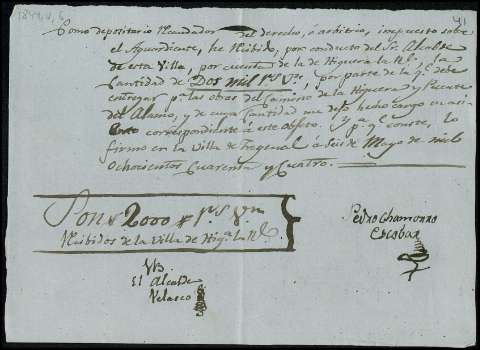 1844, V, 6
41
Como depositario Recaudador del derecho, ó arbitrio, impuesto sobre
el Aguardiente, he Recibido, por conducta del Sr. Alcalde
de esta Villa, por cuenta de la de Higuera la Rl., la
Cantidad de Dos mil rs. vn., por parte de la q.e debe
entregar pa. las obras del Camino de la Higuera y Puente
del Alamo, y de cuya Cantidad me dejo hecho cargo en
correspondiente á este objeto. Y pa. q.e conste, lo
firmo en la Villa de Fregenal á Seis de Mayo de mil
Ochocientos Cuarenta y Cuatro.
Son 2000 rs. vn.
Recibidos de la Villa de Higa. la Rl.
Pedro Chamorro
Escobar
VB.
El Alcalde
Velasco